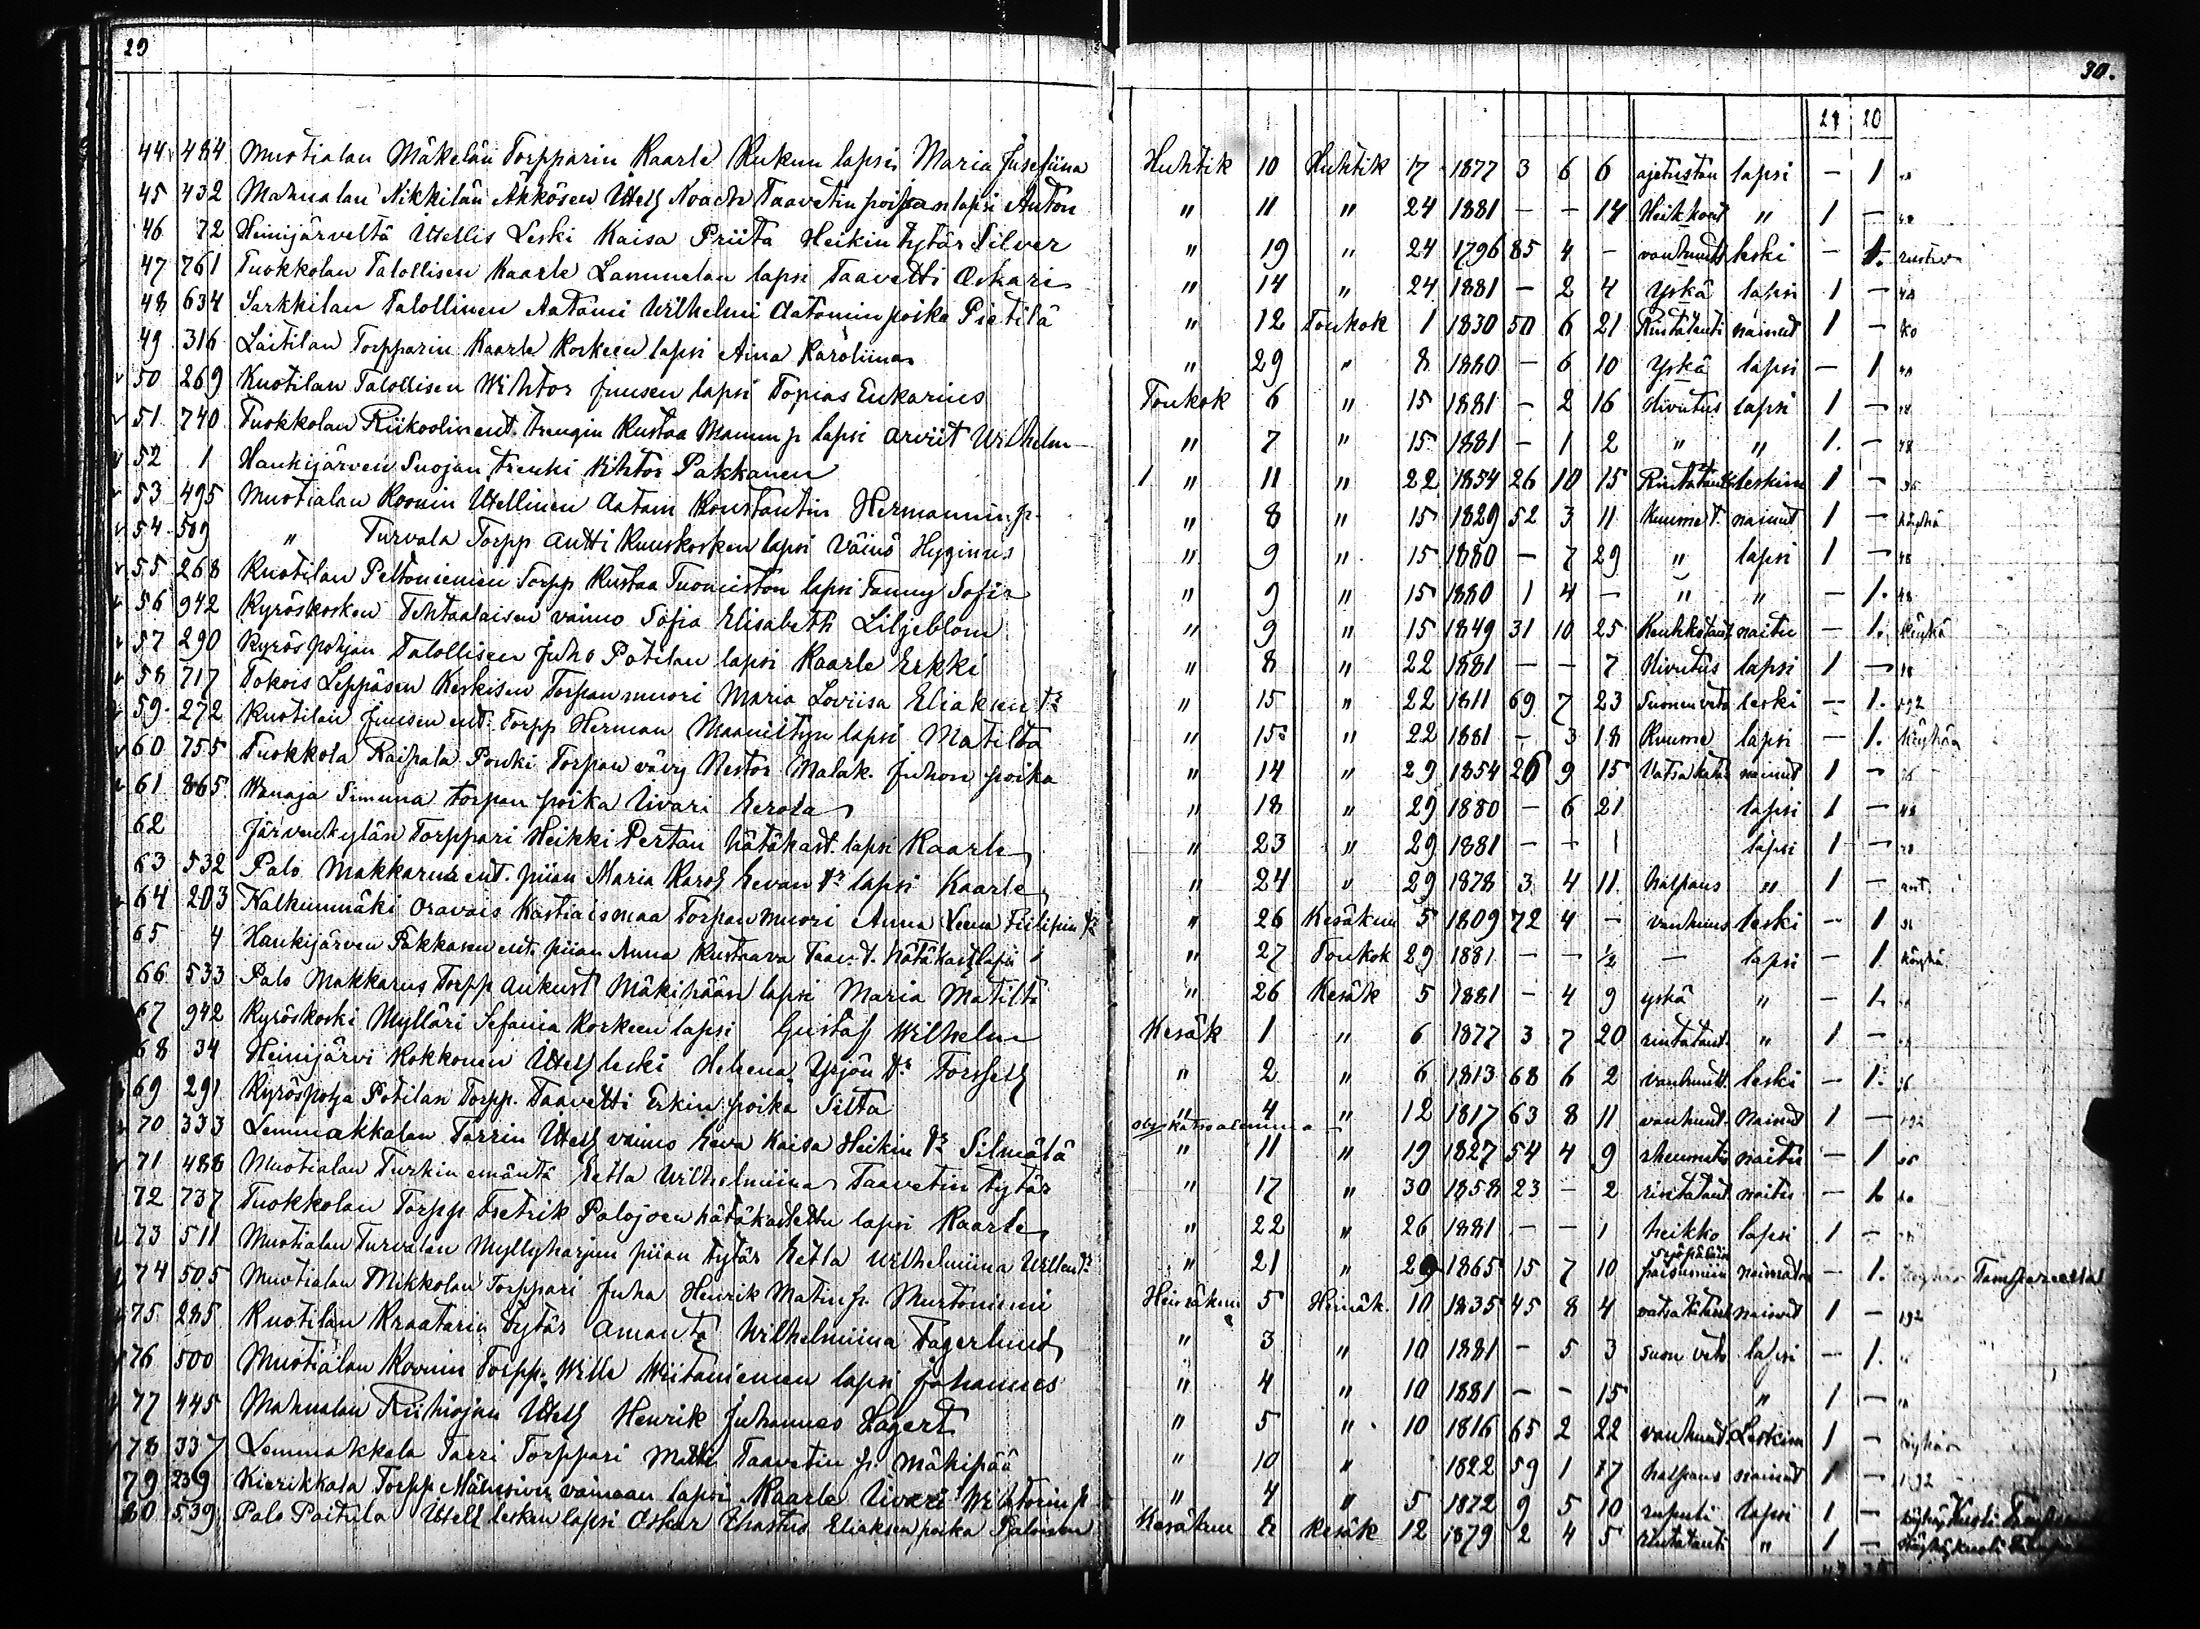 29
30.
27 20
44 484 Muotialan Mäkelän Torpparin Kaarle Kukun lapsi Maria Josefiina Huhtik 10 Huhtik 17 1877 3 6 6 ajetustau lapsi — 1
45 432 Mahnalan Nikkilän Akkösen Itell Noach Taavetin poijan lapsi Anton " 11 " 24 1881 — — 14 Heikkout " 1 —
46 72 Heinijärveltä Itellis Leski Kaisa Priita Heikin tytär Silver " 19 " 24 1796 85 4 — vanhuutt leski — 1.
47 761 Tuokkolan Talollisen Kaarle Lammelan lapsi Taavetti Oskari " 14 " 24 1881 — 2 4 Yskä lapsi 1 —
48 634 Sarkkilan Talollinen Aatami Wilhelmi Aatamin poika Pietilä " 12 Toukok 1 1830 50 6 21 Rintatauti nainut 1 —
49 316 Laitilan Torpparin Kaarle Korkeen lapsi Aina Karoliina " 29 " 8 1880 — 6 10 Yskä lapsi — 1
50 269 Kuotilan Talollisen Wihtor Juusen lapsi Topias Eukarius Toukok 6 " 15 1881 — 2 16 Hivutus lapsi 1 —
51 740 Tuokkolan Riikoolin ent. trengin Kustaa Mamm p lapsi Arviit Wilhelm " 7 " 15 1881 — 1 2 " " 1. —
52 1 Haukijärven Suojan trenki Wihtor Pakkanen " 11 " 22 1854 26 10 15 Rintatauti leskim 1 —
53 495 Muotialan Roonin Itellinen Aatam Konstantin Hermannin p. " 8 " 15 1829 52 3 11 Kuumet. nainut 1 — köyhä
54 509 " Turvala Torpp Antti Kuuskosken lapsi Väinö Hyginus " 9 " 15 1880 — 7 29 " lapsi 1 —
55 268 Kuotilan Peltoniemen Torpp Kustaa Tuomiston lapsi Fanny Sofia " 9 " 15 1880 1 4 — " " — 1.
56 942 Kyröskosken Tehtaalaisen vaimo Sofia Elisabeth Liljeblom " 9 " 15 1849 31 10 25 Keuhkotaut naitu — 1. köyhä
57 290 Kyröspohjan Talollisen Juho Potilan lapsi Kaarle Erkki " 8 " 22 1881 — — 7 Hivutus lapsi 1 —
58 717 Tokois Leppäsen Keskisen Torpan muori Maria Loviisa Eliakun tr " 15 " 22 1811 69 7 23 Suonenveto leski — 1.
59. 272 Kuotilan Juusen ent. Torpp Herman Maaniityn lapsi Matilta " 15 " 22 1881 — 3 18 Kuume lapsi — 1. köyhää
60 755 Tuokkola Raipala Ponki Torpan vävy Nestor Malak. Juhon poika " 14 " 29 1854 26 9 15 Vatsakata nainut 1 —
61 865 Wanaja Simuna torpan poika Iivari Eerola " 18 " 29 1880 — 6 21 lapsi 1 —
62 Järvenkylän Torppari Heikki Pertan hätäkast. lapsi Kaarle " 23 " 29 1881 — — 1 lapsi 1 —
63 532 Palo Makkarus ent. piian Maria Karol Eevan tr lapsi Kaarle " 24 " 29 1878 3 4 11 halpaus " 1 —
64 203 Kalkunmäki Oravais Kastiaismaa Torpan muori Anna Leena Fiilipin tr " 26 Kesäkuu 5 1809 72 4 — vanhuus leski — 1
65 4 Haukijärven Pakkasen ent. piian Anna Kustaava Taav. t. hätäkast lapsi " 27 Toukok 29 1881 — — ½ — lapsi — 1. köyhä
66 533 Palo Makkarus Torpp Aukust Mäkihään lapsi Maria Matilta " 26 Kesäk 5 1881 — 4 9 yskä " — 1.
67 942 Kyröskoski Mylläri Sefania Korkeen lapsi Gustaf Wilhelm Kesäk 1 " 6 1877 3 7 20 rintataut. " 1 —
68 34 Heinijärvi Kokkonen Itell leski Helena Yrjön tr Forssell " 2 " 6 1813 68 6 2 vanhuutt. leski — 1.
69 291 Kyröspohja Potilan Torpp. Taavetti Erkin poika Silta " 4 " 12 1817 63 8 11 vanhuut. Nainut 1 —
70 333 Lemmakkalan Tarrin Itell vaimo Eeva Kaisa Heikin tr Silmälä " 11 " 19 1827 54 4 9 rheumatis naitu — 1
71 488 Muotialan Turkin emäntä Eetla Wilhelmiina Taavetin tytär " 17 " 30 1858 23 — 2 rintataut. naitu — 1.
72 737 Tuokkolan Torpp Fretrik Palojoen hätäkastettu lapsi Kaarle " 22 " 26 1881 — — 1 heikko lapsi 1 —
73 511 Muotialan Turvalan Myllyharjun piian tytär Eetla Wilhelmiina Willen tr " 21 " 29 1865 15 7 10 naimaton — 1. Tampereella
74 505 Muotialan Mikkolan Torppari Juha Henrik Matin p. Murtoniemi Heinäkuu 5 Heinäk. 10 1835 45 8 4 vatsatataut nainut 1 —
75 285 Kuotilan Kraatarin tytär Amanta Wilhelmiina Fagerlund " 3 " 10 1881 — 5 3 suon veto lapsi — 1.
76 500 Muotialan Roonin Torpp. Wille Wiitaniemen lapsi Johannes " 4 " 10 1881 — — 15 " 1 —
77 445 Mahnalan Riihiojan Itell Henrik Juhannes Hagert " 5 " 10 1816 65 2 22 vanhuut Leskim 1 —
78 337 Lemmakkala Tarri Torppari Matti Taavetin p. Mäkipää " 10 " 1822 59 1 17 halpaus nainut 1 —
79 239 Kierikkala Torpp vainaan lapsi Kaarle Iivari Wihtorin p " 4 " 5 1872 9 5 10 rupuli lapsi 1 —
80 539 Palo Paitula Itell lesken lapsi Oskar Eliaksen poika Kesäkuu 2 Kesäk 12 1879 2 4 5 Rintatauti " 1 —